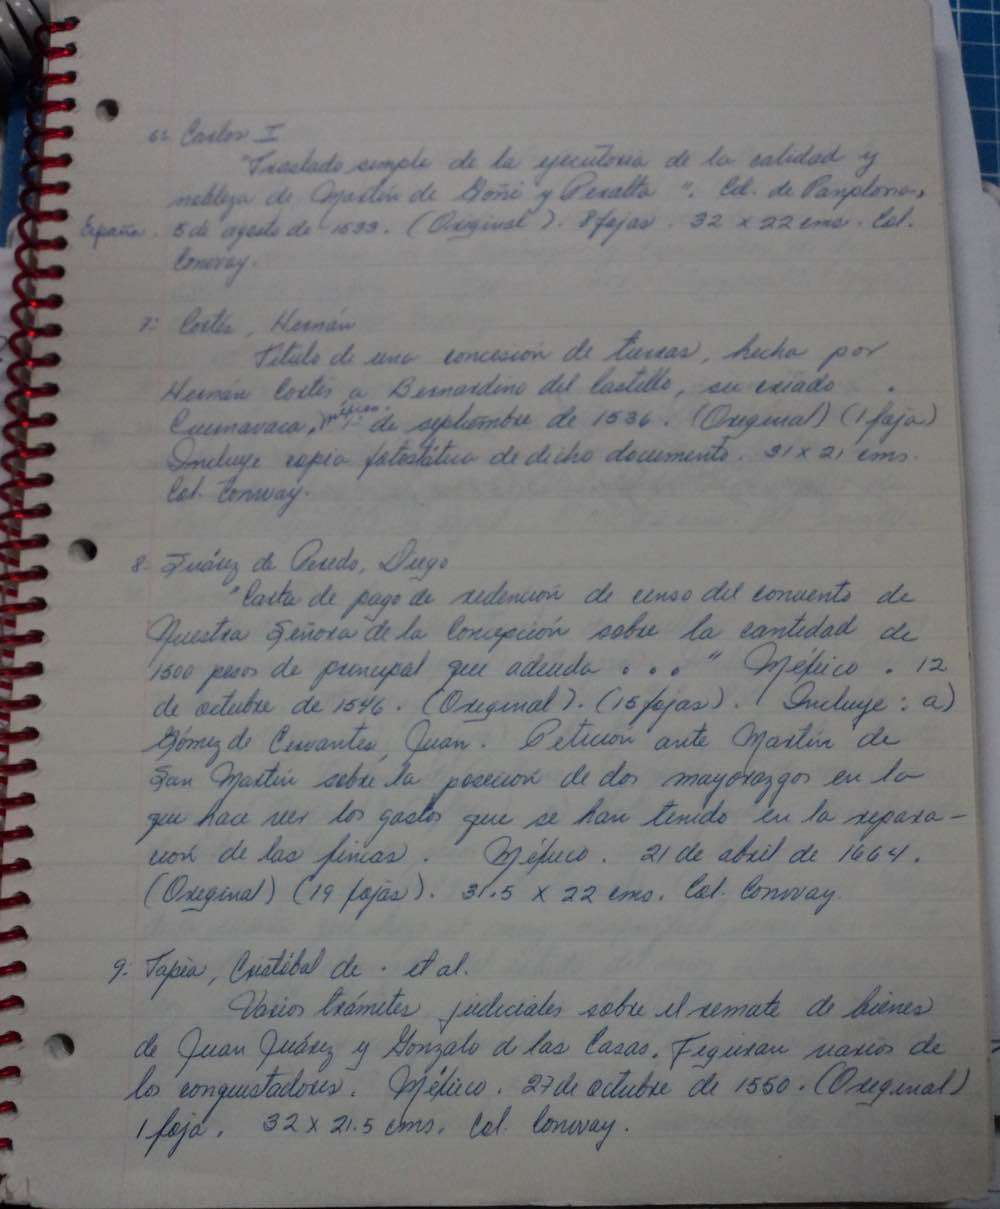 6: Carlos I
"Traslado simple de la ejecutoria de la calidad y
nobleza de Martín de Goñi y Peralta". Cd. de Pamplona,
España. 5 de agosto de 1533. (Original). 8 fojas. 32 x 22 cms. Col.
Conway.
7: Cortés, Hernán
Título de una concesión de tierras, hecha por
Hernán Cortés a Bernardino del Castillo, su criado.
Cuernavaca, México. 1º de septiembre de 1536. (Original) (1 foja)
Incluye copia fotostática de dicho documento. 31 x 21 cms.
Col. Conway.
8- Suárez de Peredo, Diego
"Carta de pago de redención de censo del convento de
Nuestra Señora de la Concepción sobre la cantidad de
1500 pesos de principal que adeuda ..." México. 12
de octubre de 1546. (Original). (15 fojas). Incluye: a)
Gómez de Cervantes, Juan. Petición ante Martín de
San Martín sobre la posecion de dos mayorazgos en la
que hace ver los gastos que se han tenido en la repara-
cion de las fincas. México. 21 de abril de 1664.
(Original) (19 fojas). 31.5 x 22 cms. Col. Conway.
9: Tapia, Cristóbal de. et al.
Varios trámites judiciales sobre el remate de bienes
de Juan Juárez y Gonzalo d las Casas. Figuran varios de
los conquistadores. México. 27 de octubre de 1550. (Original)
1 foja. 32 x 21.5 cms. Col. Conway.